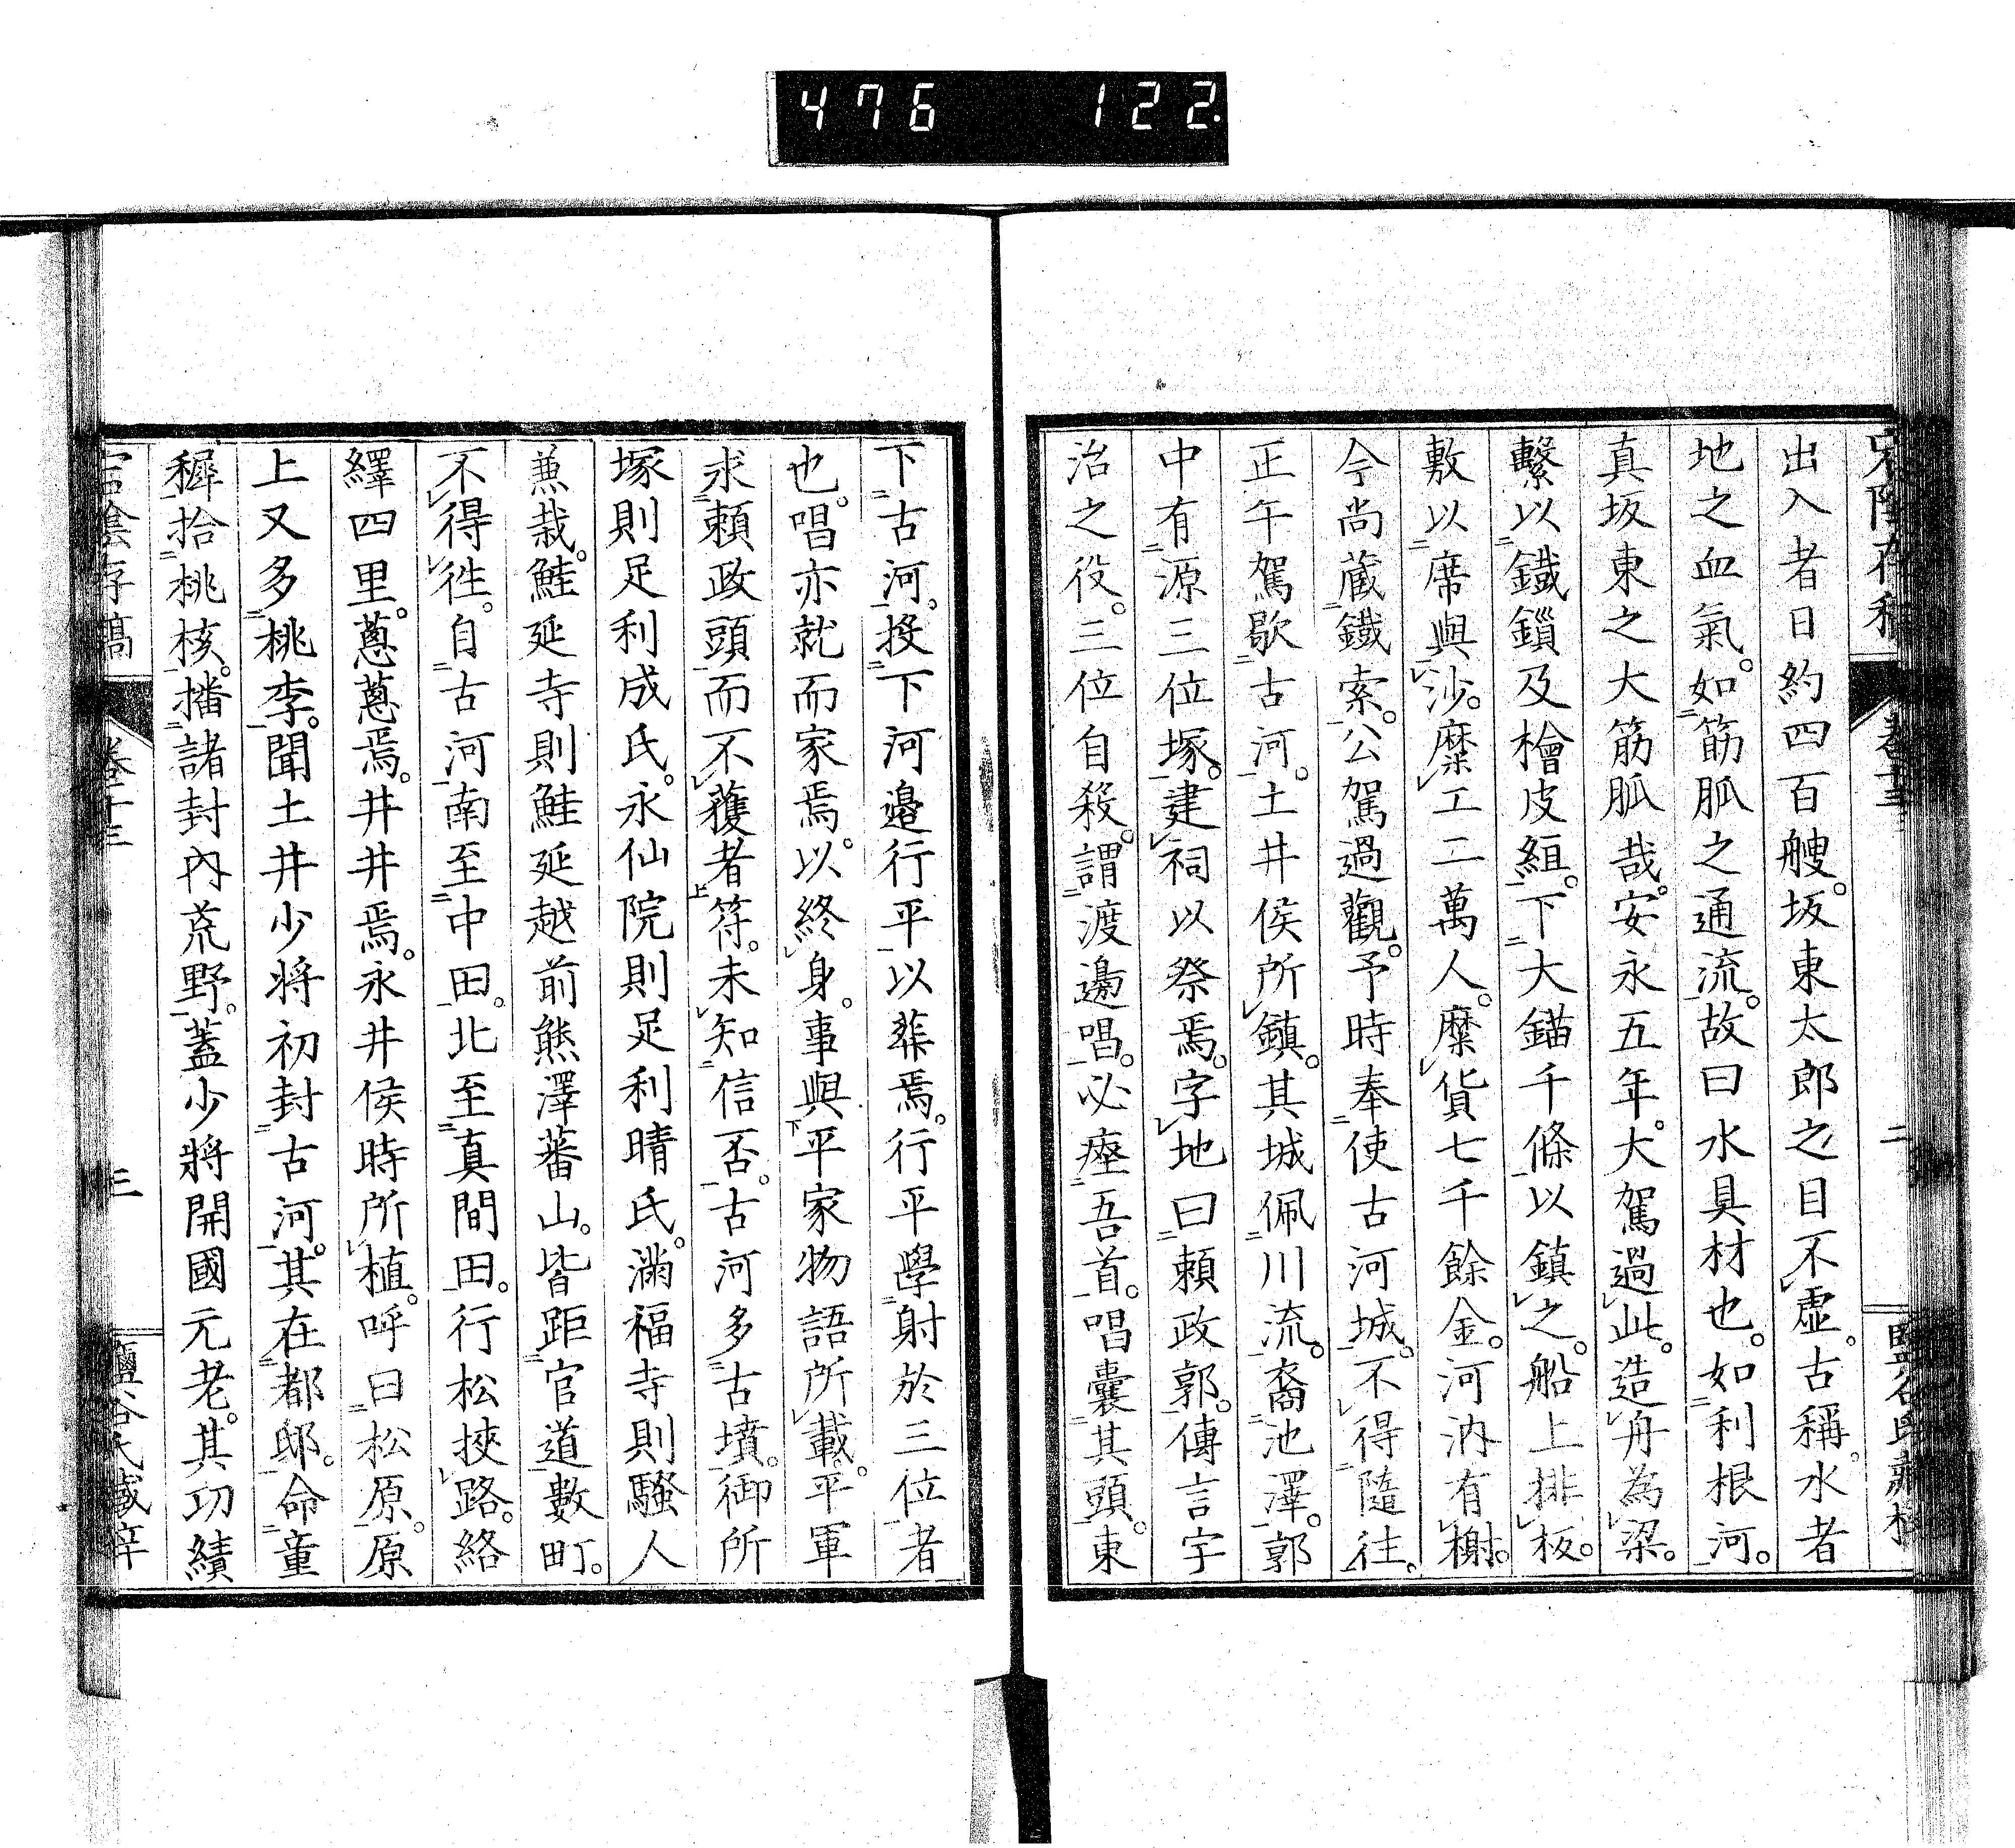 476 122
卷十三
二
出入者日約四百艘。坂東太郎之目不虛。古稱。水者
地之血氣。如筋脈之通流。故曰水具材也。如利根河。
真坂東之大筋脈哉。安永五年。大駕過此。造舟為梁。
繫以鐵鎖及檜皮絙。下大錨千條以鎮之。船上排板。
敷以席與沙。糜工二萬人。糜貨七千餘金。河汭有榭。
今尚藏鐵索。公駕過觀。予時奉使古河城。不得隨往。
正午駕歇古河。土井侯所鎮。其城佩川流。裔池澤。郭
中有源三位塚。建祠以祭焉。字地曰賴政郭。傳言宇
治之役。三位自殺。謂渡邊唱。必瘞吾首。唱囊其頭。東
下古河。授下河邉行平以葬焉。行平學射於三位者
也。唱亦就而家焉。以終身。事與平家物語所載。平軍
求賴政頭而不獲者符。未知信否。古河多古墳。御所
塚則足利成氏。永仙院則足利晴氏。滿福寺則騷人
蕪栽。鮭延寺則鮭延越前熊澤蕃山。皆距官道數町。
不得往。自古河南至中田。北至真間田。行松挾路。絡
繹四里。蔥蔥焉。井井焉。永井侯時所植。呼曰松原。原
上又多桃李。聞土井少將初封古河。其在都邸。命童
穉拾桃核。播諸封內荒野。蓋少將開國元老。其功績
宕陰存稿
卷十三
三
鹽谷氏藏梓